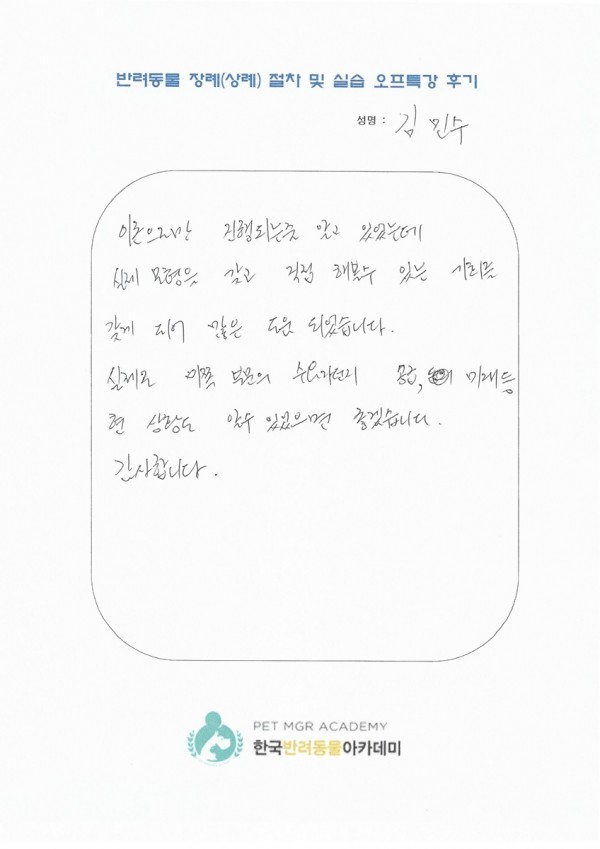 반려동물 장례(상례) 절차 및 실습 오프특강 후기
성명 : 김민수
이론으로만 진행되는줄 알고 있었는데
실제 모형을 갖고 직접 해볼수 있는 기회를
갖게 되어 많은 도움 되었습니다.
실제로 이쪽 부문의 미래등
현 상황도 알수 있었으면 좋겠습니다.
감사합니다.
PET MGR ACADEMY
한국반려동물아카데미